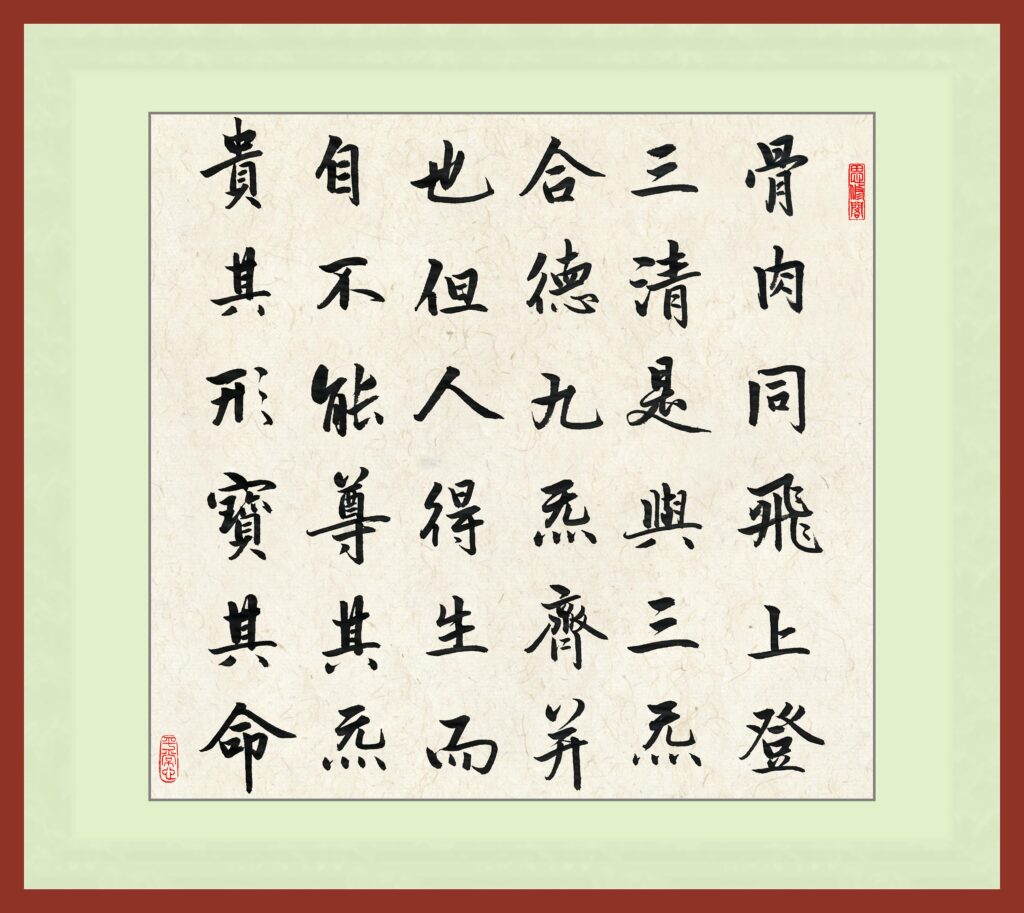 骨肉同飛上登
三清是與三炁
合德九炁齊并
也但人得生而
自不能尊其炁
貴其形寶其命
思微閣
平常心